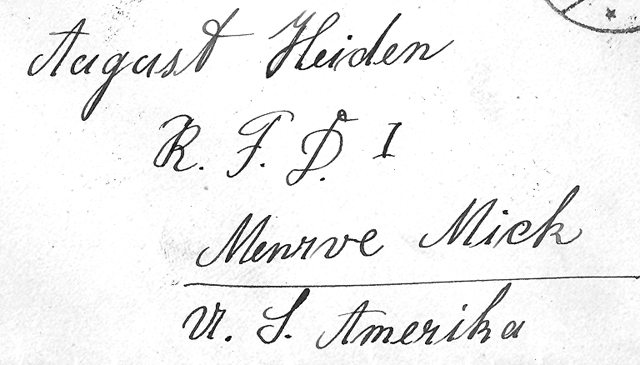 August Heiden
R. F. D. I
Menrve Mick
U. S. Amerika